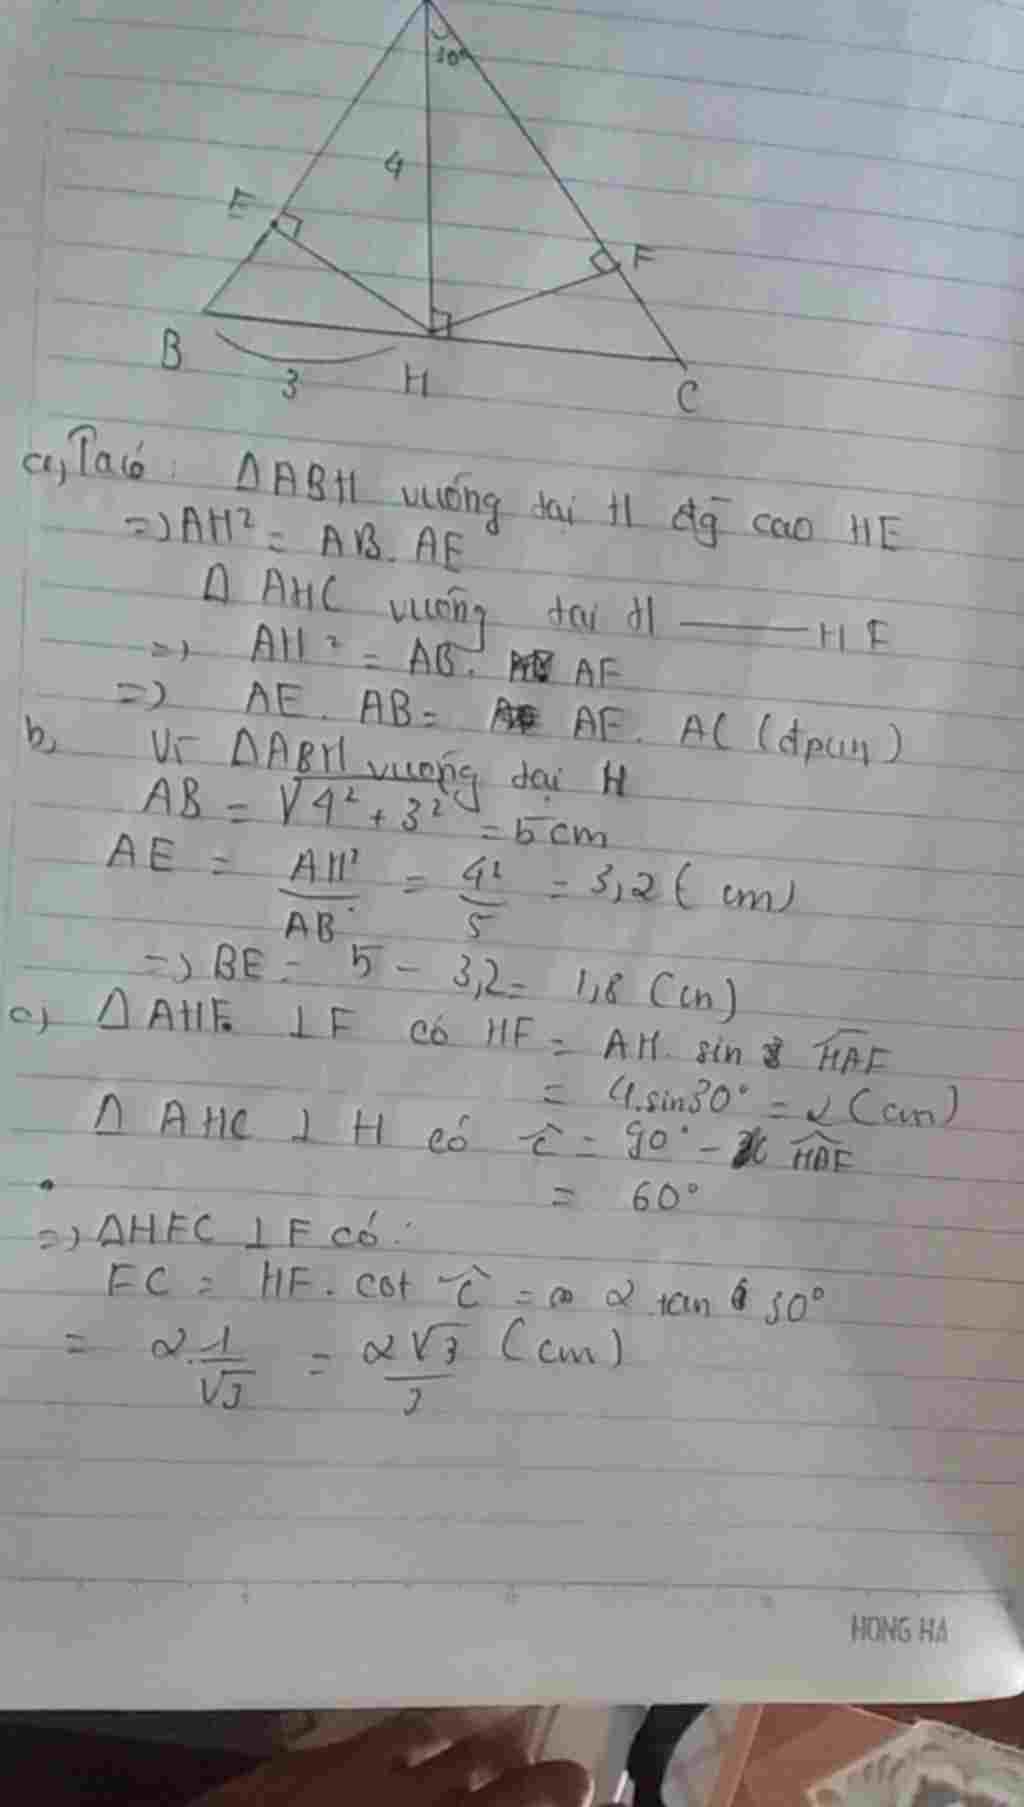 30°
4
E
F
B
3
H
C
a, Ta có: ΔABH vuống tại H đg cao HE
=> AH² = AB. AE
Δ AHC vuống tại H —— HF
=> AH² = AB. AF
=> AE. AB = AF. AC (đpcm)
b, Vì ΔABH vuống tại H
AB = √4² + 3² = 5cm
AE = AH²/AB = 4²/5 = 3,2 (cm)
=> BE = 5 - 3,2 = 1,8 (cm)
c) ΔAHF ⊥F có HF = AH. sin HAF
= 4.sin30° = 2 (cm)
Δ AHC ⊥ H có Ĉ = 90° - HAF
= 60°
=> ΔHFC ⊥F có:
FC = HF. cot Ĉ = 2 tan 30°
= 2.1/√3 = 2√3/3 (cm)
HONG HA